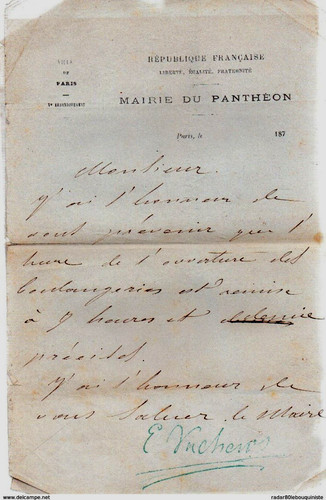 VILLE
DE
PARIS
Ve ARRONDISSEMENT
RÉPUBLIQUE FRANÇAISE
LIBERTÉ, ÉGALITÉ, FRATERNITÉ
MAIRIE DU PANTHÉON
Paris, le 187
Monsieur.
J'ai l'honneur de
vous prévenir que l'
heure de l'ouverture des
boulangeries est remise
à 9 heures et
précises.
J'ai l'honneur de
vous saluer. le Maire
E Vacherot
radar80elebouquiniste